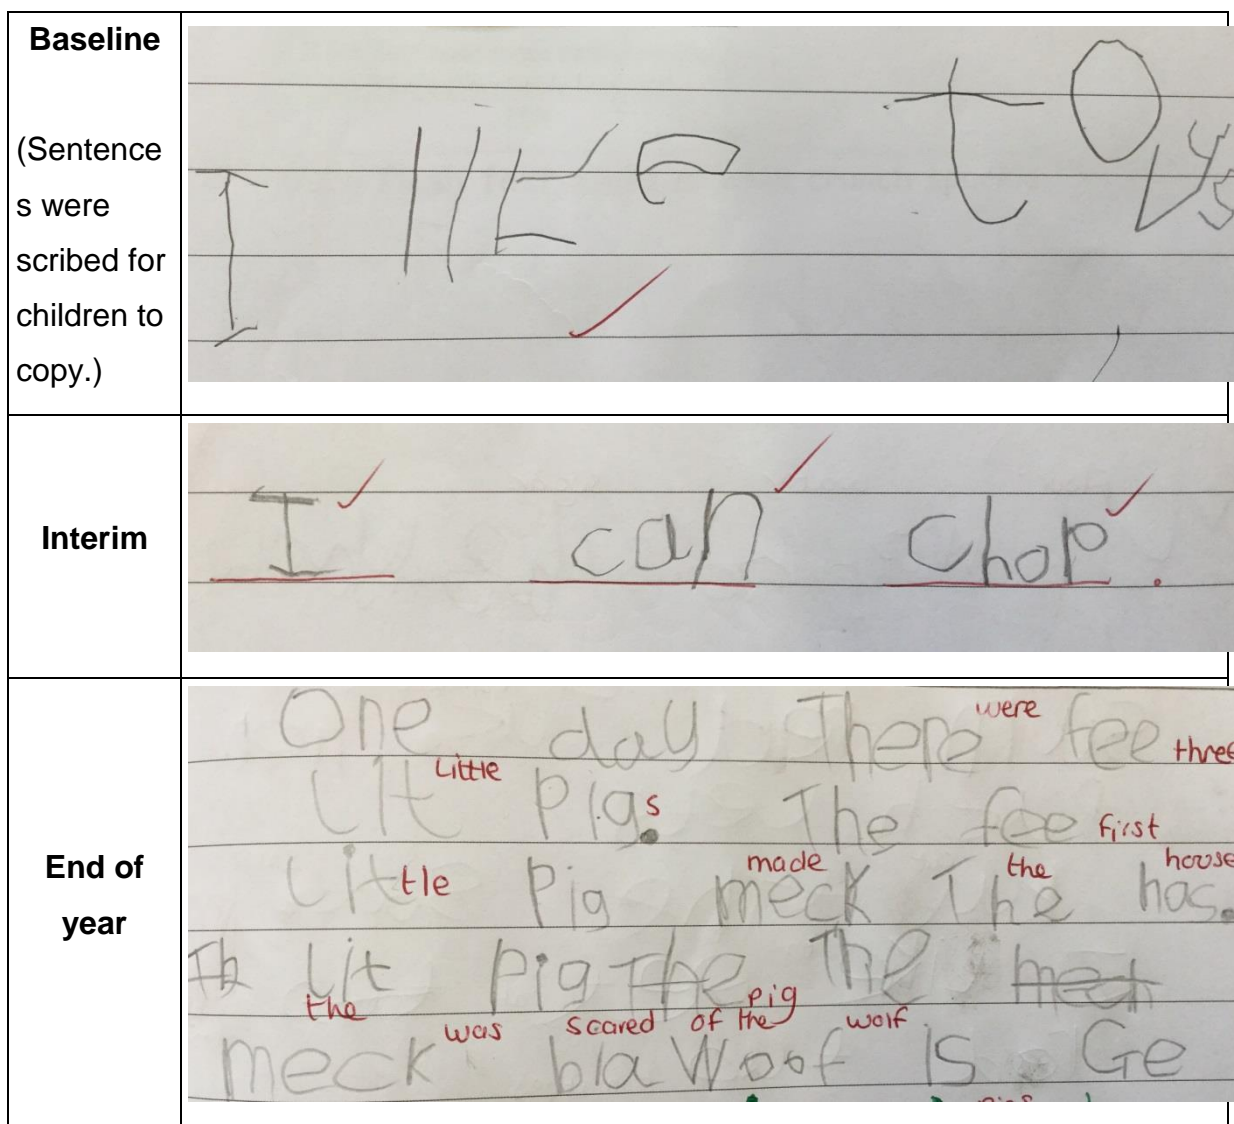 Baseline
(Sentence
s were
scribed for
children to
copy.)
I like toys
Interim
I can chop .
End of
year
One day There were fee three
Lit Little Pig s . The fee first
Lit tle Pig made meck The the has. house
Th Lit Pig The The meck
the was scared of the pig wolf
meck bla Woof is Ge